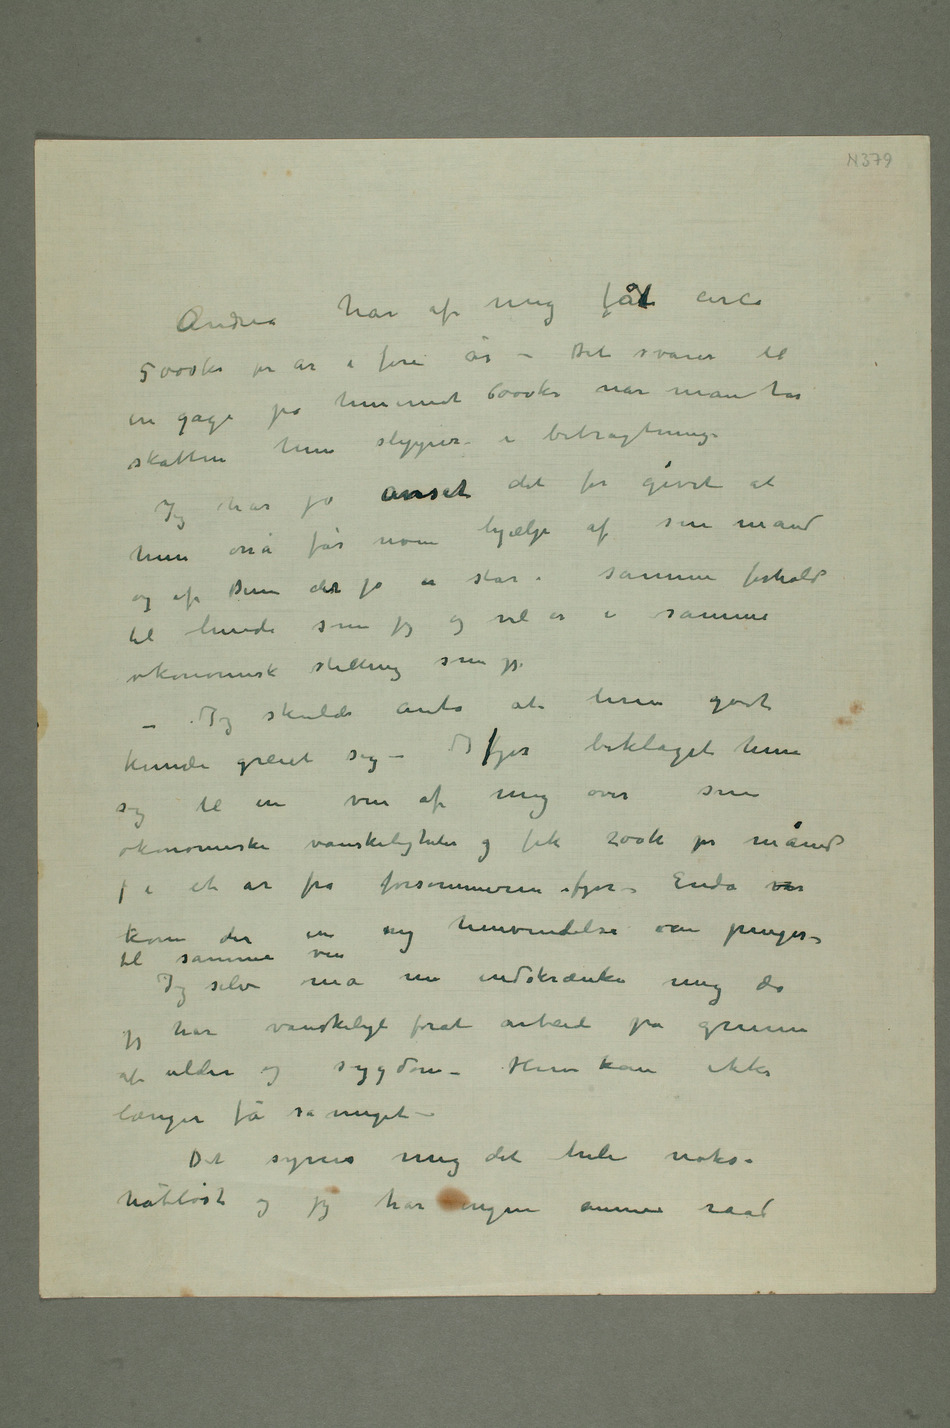 N 379
Andrea har af mig fåt circa
5000kr pr år i fire år – Det svarer til
en gage på henimod 6000kr når man tar
skatten hun slipper i betragtning.
Jeg har jo anset det for givet at
hun også får noen hjælp af sin mand
og af Dem der jo er står i samme forhold
til hende som jeg og vel er i samme
økonomisk stilling som jeg.
– Jeg skulde anta at hun godt
kunde greiet sig – I fjor beklaget hun
sig til en ven af mig over sine
økonomiske vanskeligheter og fik 200k pr månd
i et år fra forsommeren ifjor – Enda var
kom der en ny henvendelse om penger –
til samme ven
Jeg selv må nu indskrænke mig da
jeg har vanskeligt forat arbeide på grunn
af alder og sygdom – Hun kan ikke
længer få så meget –
Det synes mig det hele nokså
håbløst og jeg har ingen annen raad